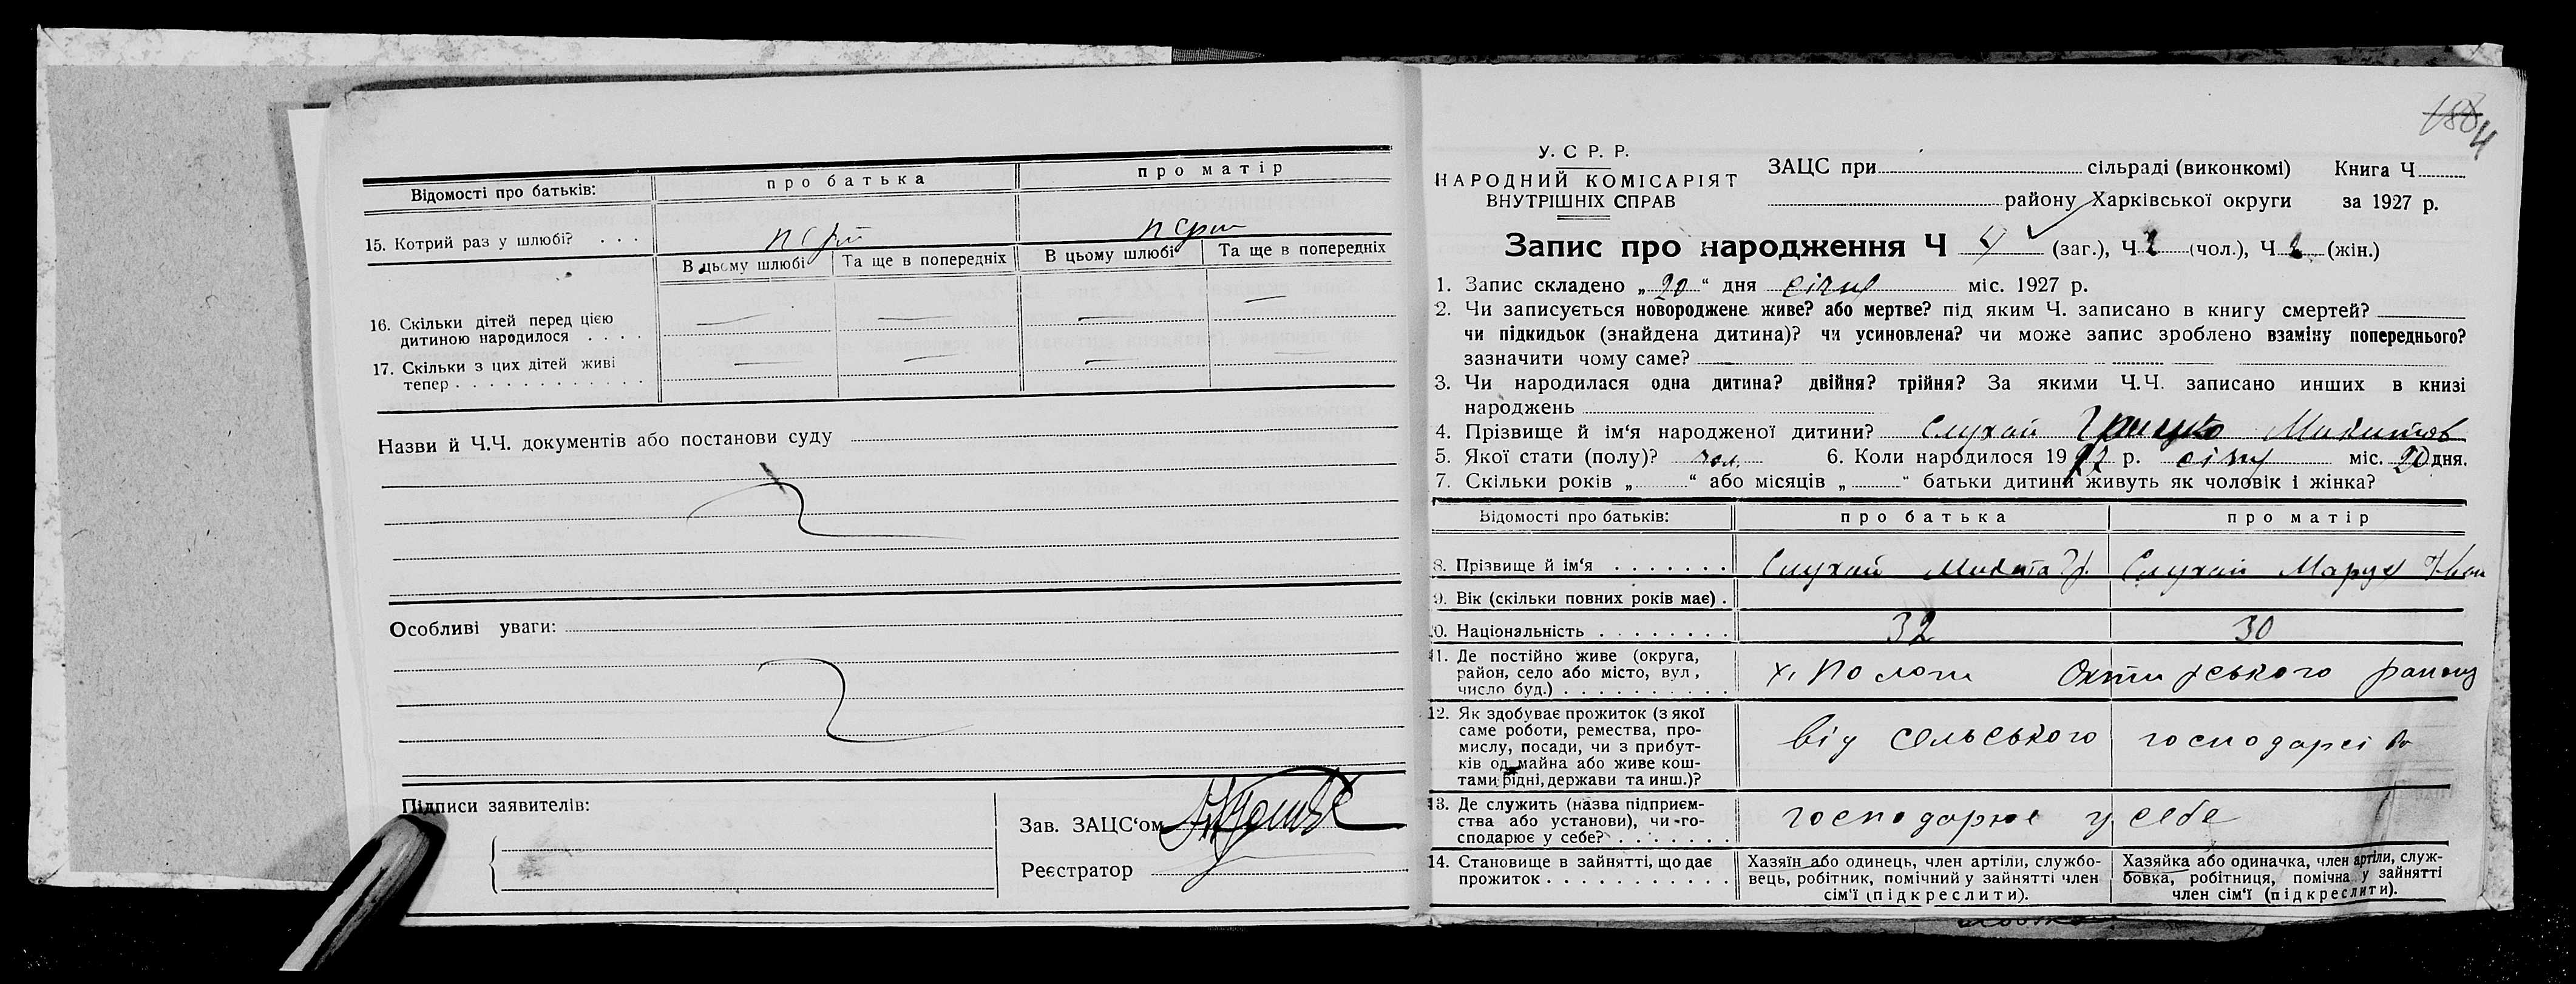 Відомості про батьків: про батька про матір
15. Котрий раз у шлюбі? . . .
В цьому шлюбі Та ще в попередніх В цьому шлюбі Та ще в попередніх
16. Скільки дітей перед цією
дитиною народилося . . . .
17. Скільки з цих дітей живі
тепер . . . . . . . . . . . . .
Назви й Ч.Ч. документів або постанови суду
Особливі уваги:
Підписи заявителів:
Зав. ЗАЦС‘ом
Реєстратор
188 4
У. С Р. Р.
НАРОДНИЙ КОМІСАРІЯТ
ВНУТРІШНІХ СПРАВ
ЗАЦС при сільраді (виконкомі) Книга Ч
району Харківської округи за 1927 р.
Запис про народження Ч 4 (заг.), Ч 2 (чол.), Ч 2 (жін.)
1. Запис складено „ 20 “ дня січня міс. 1927 р.
2. Чи записується новороджене живе? або мертве? під яким Ч. записано в книгу смертей?
чи підкидьок (знайдена дитина)? чи усиновлена? чи може запис зроблено взаміну попереднього?
зазначити чому саме?
3. Чи народилася одна дитина? двійня? трійня? За якими Ч.Ч. записано инших в книзі
народжень
4. Прізвище й ім‘я народженої дитини? Слухай Грицько Микитов
5. Якої стати (полу)? чол. 6. Коли народилося 1927 р. січня міс. 20 дня.
7. Скільки років „ “ або місяців „ “ батьки дитини живуть як чоловік і жінка?
Відомості про батьків: про батька про матір
8. Прізвище й ім‘я . . . . . . . Слухай Микита Гр. Слухай Маруся Іван
9. Вік (скільки повних років має) .
10. Національність . . . . . . . . 32 30
11. Де постійно живе (округа,
район, село або місто, вул,
число буд.) . . . . . . . . . .
х. Пологи Охтирського району
12. Як здобуває прожиток (з якої
саме роботи, ремества, про-
мислу, посади, чи з прибут-
ків од майна або живе кош-
тами рідні, держави та инш.)?
від сільського господарства
13. Де служить (назва підприєм-
ства або установи), чи го-
сподарює у себе? . . . . . . .
господарює у себе
14. Становище в зайнятті, що дає
прожиток . . . . . . . . . . .
Хазяїн або одинець, член артілі, службо-
вець, робітник, помічний у зайнятті член
сім‘ї (підкреслити).
Хазяйка або одиначка, член артіли, служ-
бовка, робітниця, помічна у зайнятті
член сім‘ї (підкреслити).